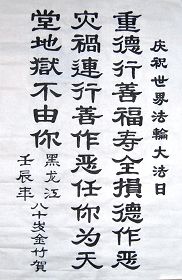 庆祝世界法輪大法日
重德行善福寿全損德作恶
灾禍連行善作恶任你为天
堂地獄不由你
黑龙江八十岁金竹賀
壬辰年